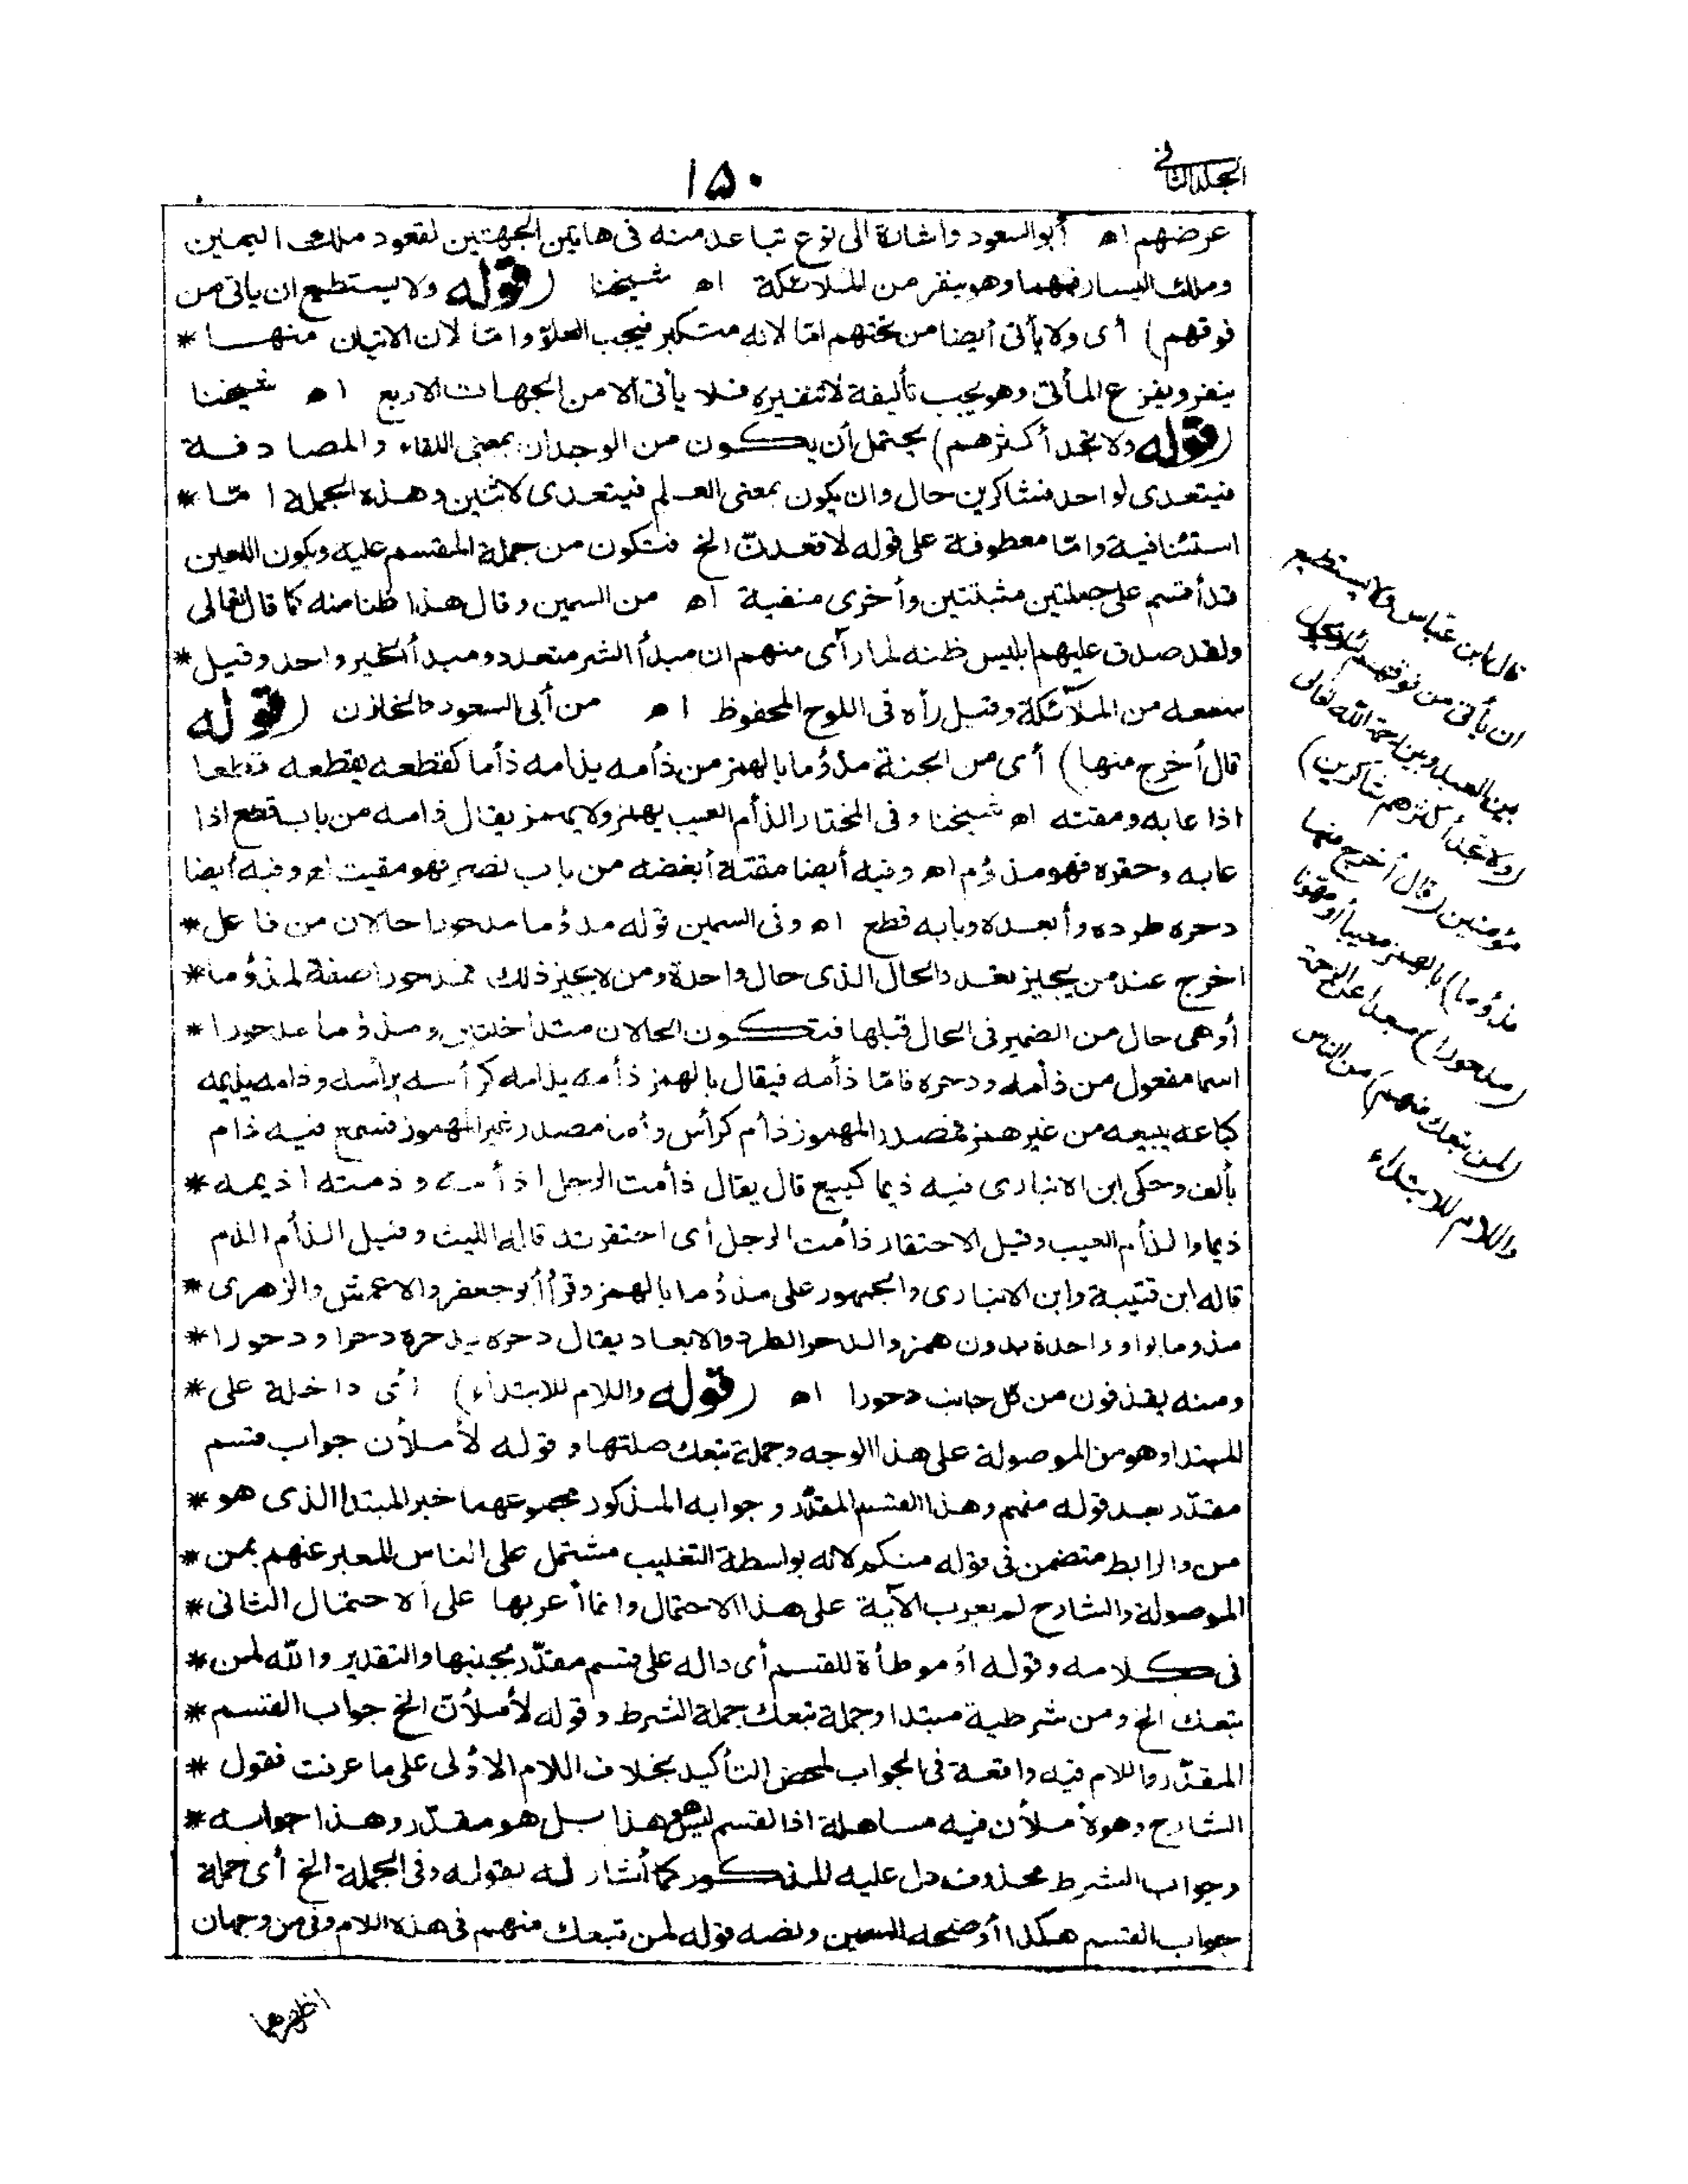 المجلد الثانى
١٥٠
عرضهم اه أبو السعود واشارة الى نوع تباعد منه فى هاتين الجهتين لقعود ملك اليمين
وملك اليسار فيهما وهو ينفر من الملائكة اه شيخنا (قوله ولا يستطيع ان ياتى من
فوقهم) أى ولا يأتى أيضا من تحتهم امّا لانه متكبر فيحب العلوّ وامّا لان الاتيان منهـا *
ينفر ويفزع المأتى وهو يحب تأليفه لا تنفيره فلا يأتى الا من الجهات الاربع اه شيخنا
(قوله ولا تجد أكثرهم) يحتمل أن يكون من الوجدان بمعنى اللقاء والمصادفة
فيتعدى لواحد فشاكرين حال وان يكون بمعنى العلم فيتعدى لاثنين وهذه الجملة امّا *
استئنافية وامّا معطوفة على قوله لاقعدنّ الخ فتكون من جملة المقسم عليه ويكون اللعين
قد أقسم على جملتين مثبتتين وأخرى منفية اه من السمين وقال هذا ظنا منه كما قال تعالى
ولقد صدق عليهم ابليس ظنه لما رآى منهم ان مبدأ الشر متعدد ومبدأ الخير واحد وقيل *
سمعه من الملآئكة وقيل رآه فى اللوح المحفوظ اه من أبى السعود والخازن (قوله
قال أخرج منها) أى من الجنة مذؤما بالهمز من ذأمه يذامه ذأما كقطعه يقطعه قطعا
اذا عابه ومقته اه شيخنا وفى المختار الذأم العيب يهمز ولا يهمز يقال ذامه من باب قطع اذا
عابه وحقره فهو مذؤم اه وفيه أيضا مقته أبغضه من باب نصر فهو مقيت اه وفيه أيضا
دحره طرده وأبعده وبابه قطع اه وفى السمين قوله مذؤما مدحورا حالان من فاعل *
اخرج عند من يجيز تعدد الحال لذى حال واحدة ومن لا يجيز ذلك فمدحورا صفة لمذؤما *
أو هى حال من الضمير فى الحال قبلها فتكون الحالان متداخلتين ومذؤما مدحورا *
اسما مفعول من ذأمه ودحره فامّا ذأمه فيقال بالهمز ذأمه يذامه كرأسه يرأسه وذامه يذيمه
كباعه يبيعه من غير همز فمصدر المهموز ذأم كرأس وأما مصدر غير المهموز فسمع فيه ذام
بألف وحكى ابن الانبارى فيه ذيما كبيع قال يقال ذأمت الرجل اذأمه وذمته اذيمه *
ذيما والذأم العيب وقيل الاحتقار ذأمت الرجل أى احتقرته قاله الليث وقيل الذأم الذم
قاله ابن قتيبة وابن الانبارى والجمهور على مذؤما بالهمز وقرأ أبو جعفر والاعمش والزهرى *
مذوما بواو واحدة بدون همز والدحر الطرد والابعاد يقال دحره يدحره دحرا ودحورا *
ومنه يقذفون من كل جانب دحورا اه (قوله واللام للابتداء) أى داخلة على *
المبتدا وهو من الموصولة على هذا الوجه وجملة تبعك صلتها وقوله لأملأن جواب قسم
مقدّر بعد قوله منهم وهذا القسم المقدّر وجوابه المذكور مجموعهما خبر المبتدا الذى هو *
من والرابط متضمن فى قوله منكم لانه بواسطة التغليب مشتمل على الناس المعبر عنهم بمن *
الموصولة والشارح لم يعرب الآية على هذا الاحتمال وانما أعربها على الاحتمال الثانى *
فى كلامه وقوله أو موطأة للقسم أى داله على قسم مقدّر بجنبها والتقدير والله لمن *
تبعك الخ ومن شرطية مبتدا وجملة تبعك جملة الشرط وقوله لأملأنّ الخ جواب القسم *
المقدّر واللام فيه واقعة فى الجواب لمحض التأكيد بخلاف اللام الأولى على ما عرفت فقول *
الشارح وهو لأملأن فيه مساهلة اذ القسم ليس هو هذا بل هو مقدّر وهذا جوابه *
وجواب الشرط محذوف دل عليه المذكور كما أشار له بقوله وفى الجملة الخ أى جملة
جواب القسم هكذا أوضحه السمين ونصه قوله لمن تبعك منهم فى هذه اللام وفى من وجهان
اظهرهما
قال ابن عباس ولا يستطيع
ان يأتى من فوقهم لئلا يحول
بين العبد وبين رحمة الله تعالى
(ولا تجد أكثرهم شاكرين)
مؤمنين (قال أخرج منها
مذؤما) بالهمز معيبا أو ممقوتا
(مدحورا) مبعدا عن الرحمة
(لمن تبعك منهم) من الناس
واللام للابتداء